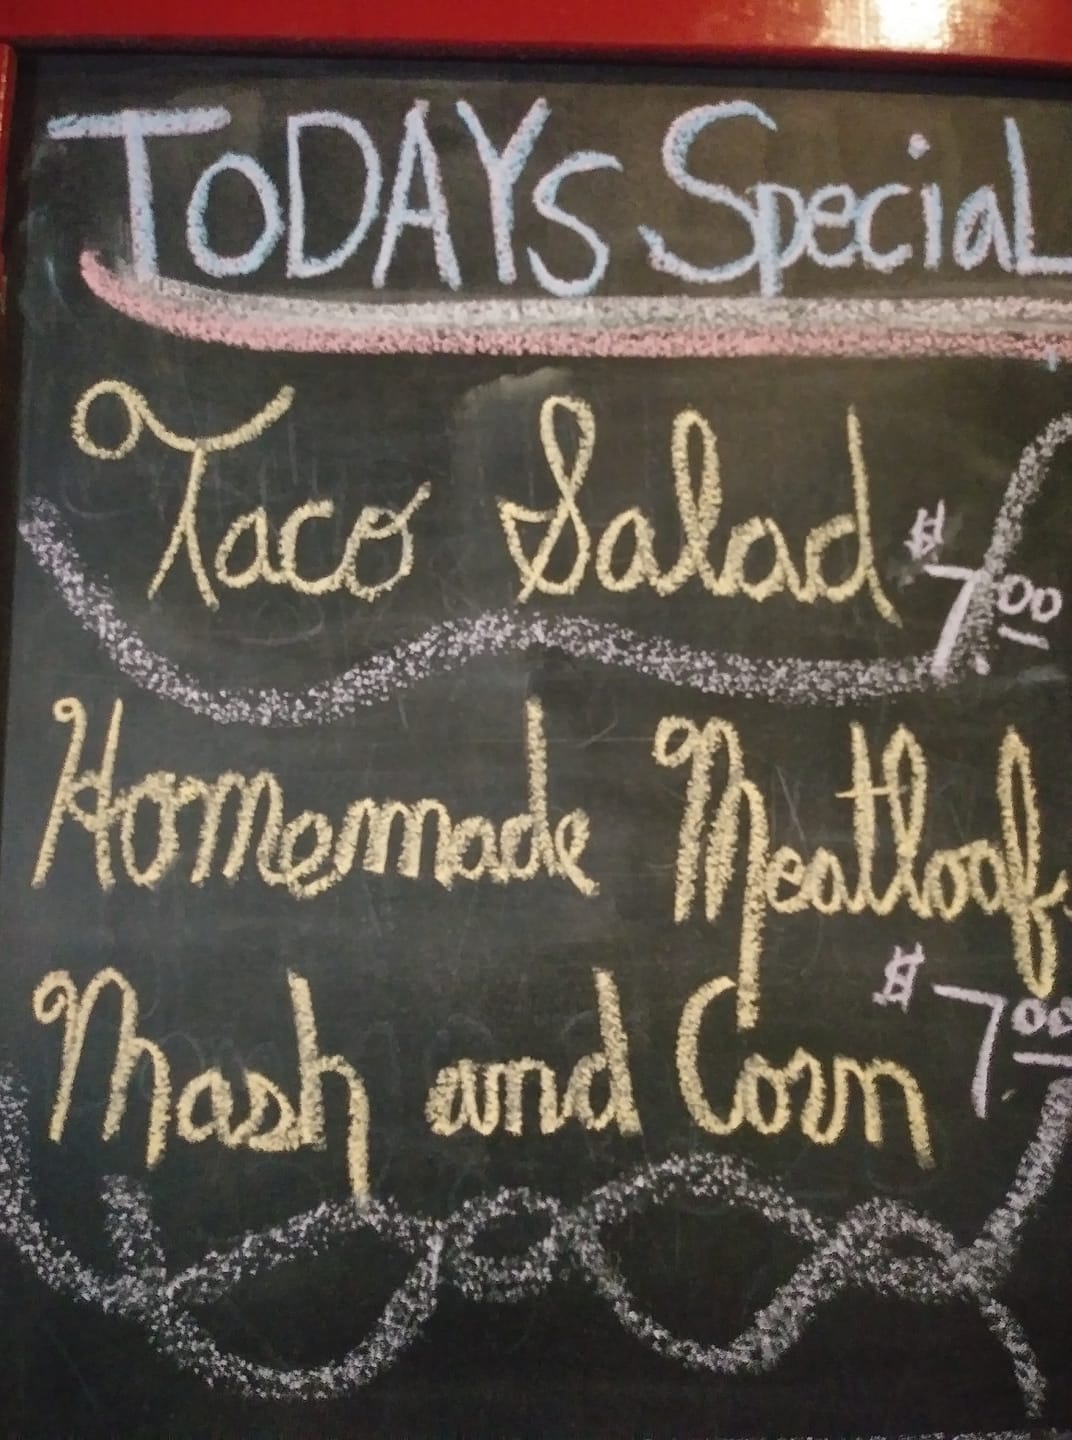 TODAYs Special
Taco Salad $7.00
Homemade Meatloaf
Mash and Corn $7.00